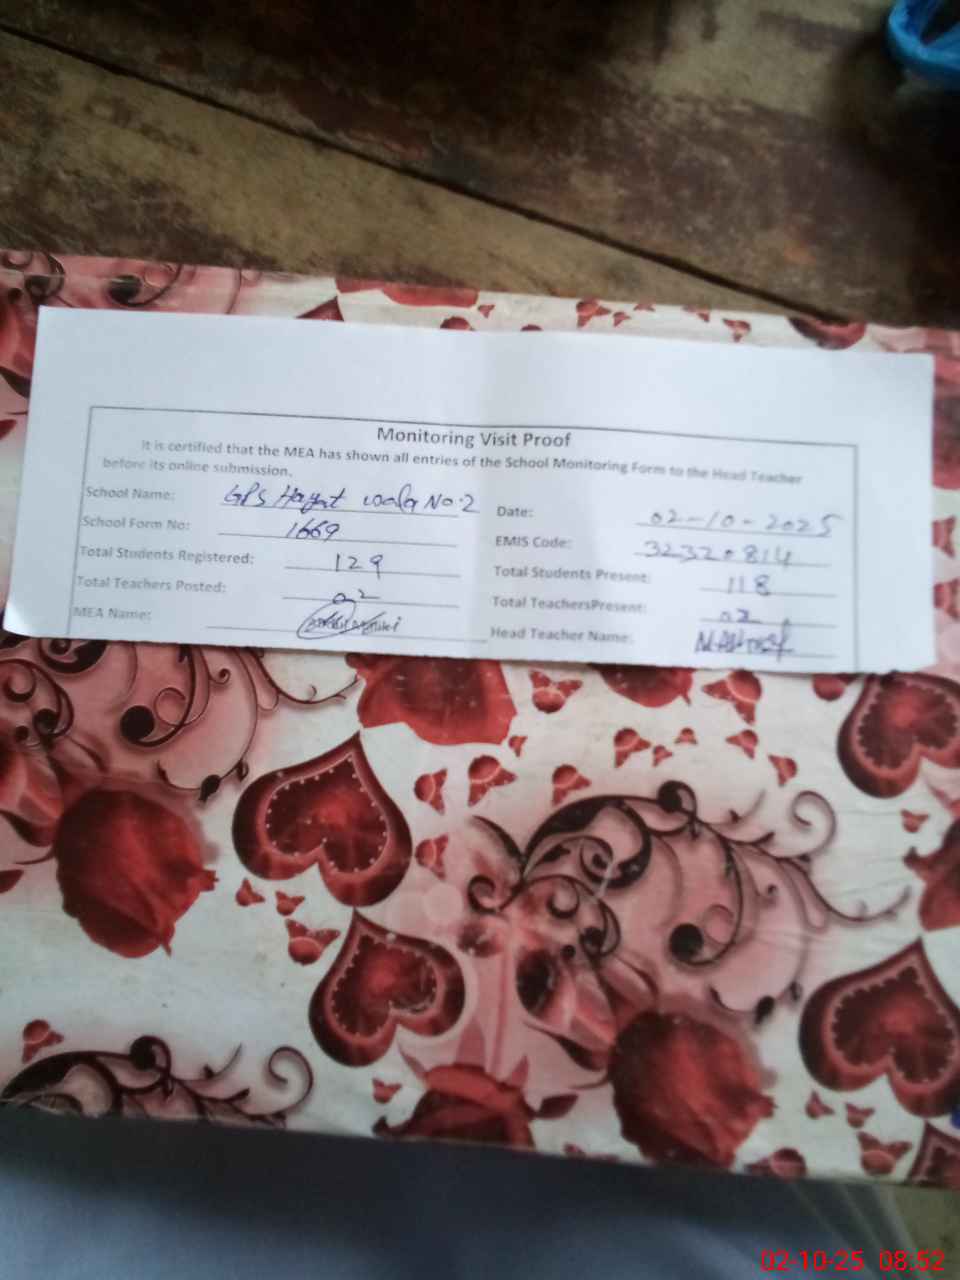 Monitoring Visit Proof
It is certified that the MEA has shown all entries of the School Monitoring Form to the Head Teacher
before its online submission.
School Name: GPS Hayat wala No.2
Date: 02-10-2025
School Form No: 1669
EMIS Code: 32320814
Total Students Registered: 129
Total Students Present: 118
Total Teachers Posted: 02
Total TeachersPresent: 02
MEA Name:
Head Teacher Name:
02-10-25 08:52